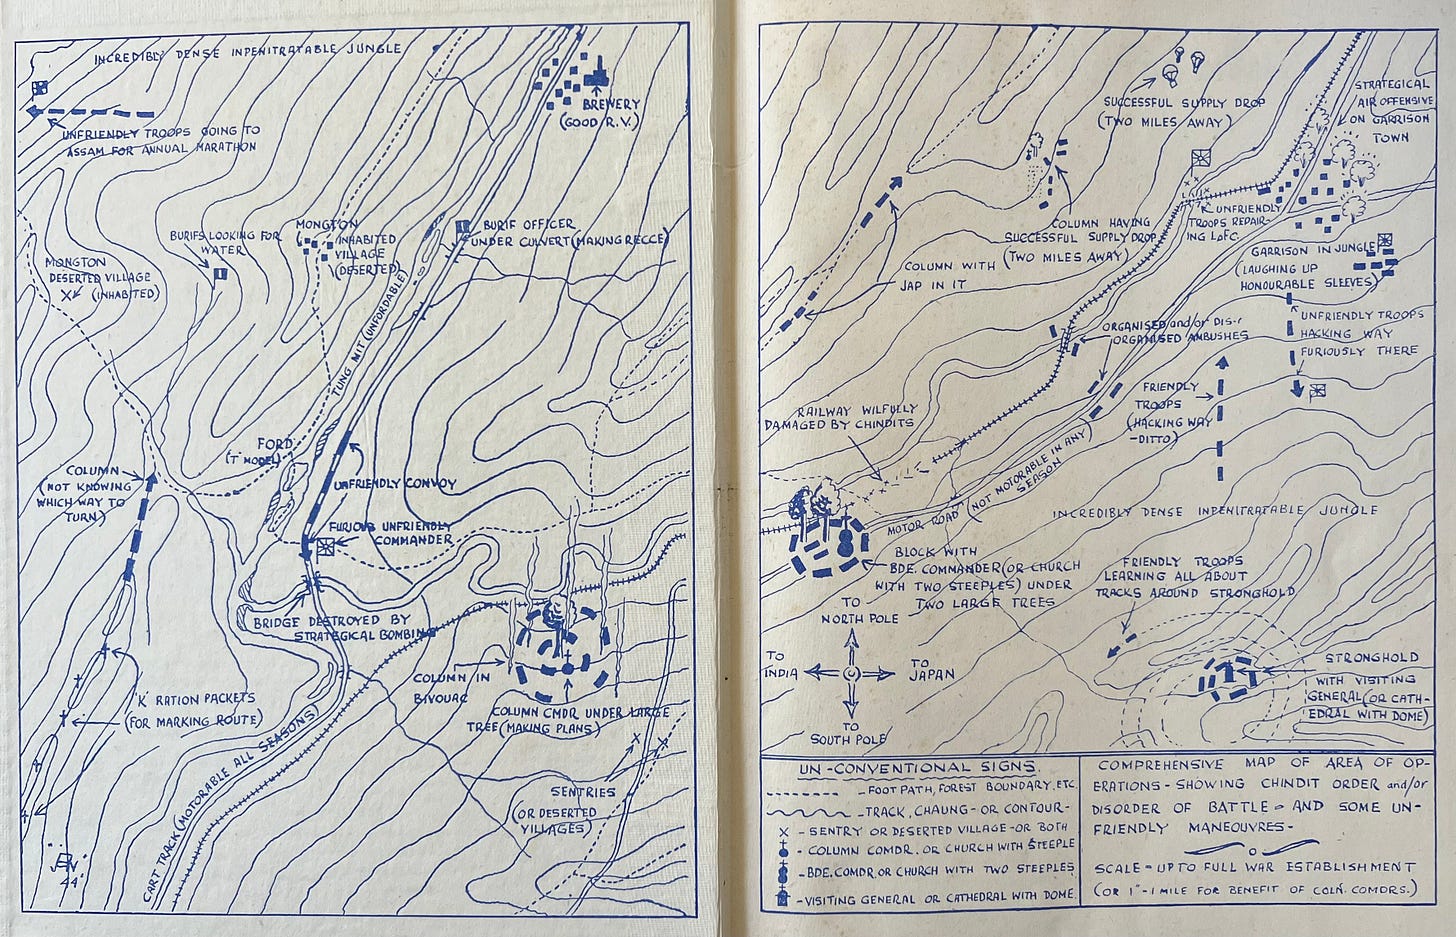 INCREDIBLY DENSE INPENITRATABLE JUNGLE
BREWERY
(GOOD R.V.)
UNFRIENDLY TROOPS GOING TO
ASSAM FOR ANNUAL MARATHON
BURIFS LOOKING FOR
WATER
MONGTON
INHABITED
VILLAGE
(DESERTED)
BURIF OFFICER
UNDER CULVERT (MAKING RECCE)
MONGTON
DESERTED VILLAGE
(INHABITED)
TUNG MIT (UNFORDABLE)
FORD
("T" MODEL)
COLUMN
(NOT KNOWING
WHICH WAY TO
TURN)
UNFRIENDLY CONVOY
FURIOUS UNFRIENDLY
COMMANDER
BRIDGE DESTROYED BY
STRATEGICAL BOMBING
COLUMN IN
BIVOUAC
COLUMN CMDR UNDER LARGE
TREE (MAKING PLANS)
'K' RATION PACKETS
(FOR MARKING ROUTE)
CART TRACK (MOTORABLE ALL SEASONS)
SENTRIES
(OR DESERTED
VILLAGES)
44
SUCCESSFUL SUPPLY DROP
(TWO MILES AWAY)
STRATEGICAL
AIR OFFENSIVE
ON GARRISON
TOWN
COLUMN HAVING
SUCCESSFUL SUPPLY DROP
(TWO MILES AWAY)
UNFRIENDLY
TROOPS REPAIR-
ING L of C.
COLUMN WITH
JAP IN IT
GARRISON IN JUNGLE
(LAUGHING UP
HONOURABLE SLEEVES)
UNFRIENDLY TROOPS
HACKING WAY
FURIOUSLY THERE
ORGANISED and/or DIS-
ORGANISED AMBUSHES
FRIENDLY
TROOPS
(HACKING WAY
-DITTO)
RAILWAY WILFULLY
DAMAGED BY CHINDITS
MOTOR ROAD (NOT MOTORABLE IN ANY
SEASON)
INCREDIBLY DENSE INPENITRATABLE JUNGLE
BLOCK WITH
BDE. COMMANDER (OR CHURCH
WITH TWO STEEPLES) UNDER
TWO LARGE TREES
FRIENDLY TROOPS
LEARNING ALL ABOUT
TRACKS AROUND STRONGHOLD
TO
NORTH POLE
TO
INDIA
TO
JAPAN
TO
SOUTH POLE
STRONGHOLD
WITH VISITING
GENERAL (OR CATH-
EDRAL WITH DOME)
UN-CONVENTIONAL SIGNS.
- FOOT PATH, FOREST BOUNDARY. ETC.
- TRACK, CHAUNG - OR CONTOUR -
X - SENTRY OR DESERTED VILLAGE - OR BOTH
- COLUMN COMDR. OR CHURCH WITH STEEPLE
- BDE. COMDR. OR CHURCH WITH TWO STEEPLES
- VISITING GENERAL OR CATHEDRAL WITH DOME.
COMPREHENSIVE MAP OF AREA OF OP-
ERATIONS - SHOWING CHINDIT ORDER and/or
DISORDER OF BATTLE - AND SOME UN-
FRIENDLY MANEOUVRES -
SCALE - UP TO FULL WAR ESTABLISHMENT
(OR 1" - 1 MILE FOR BENEFIT OF COLN. COMDRS.)